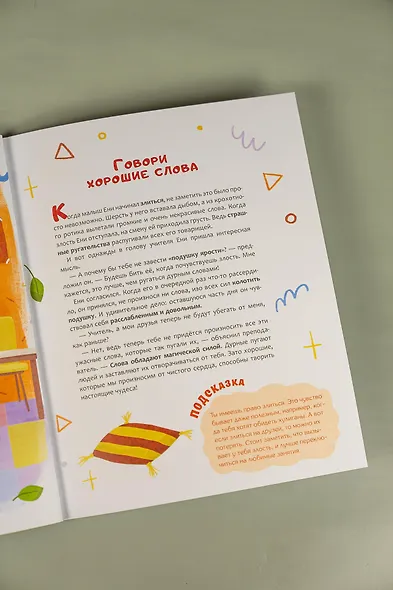 Говори
хорошие слова
Когда малыш Ени начинал злиться, не заметить это было про-
сто невозможно. Шерсть у него вставала дыбом, а из крохотно-
го ротика вылетали громкие и очень некрасивые слова. Когда
злость Ени отступала, на смену ей приходила грусть. Ведь страш-
ные ругательства распугивали всех его товарищей.
И вот однажды в голову учителя Ени пришла интересная
мысль.
— А почему бы тебе не завести «подушку ярости»? — пред-
ложил он. — Будешь бить её, когда почувствуешь злость. Мне
кажется, это лучше, чем ругаться дурными словами!
Ени согласился. Когда его в очередной раз что-то рассерди-
ло, он принялся, не произнося ни слова, изо всех сил колотить
подушку. И удивительное дело: оставшуюся часть дня он чув-
ствовал себя расслабленным и довольным.
— Учитель, а мои друзья теперь не будут убегать от меня,
как раньше?
— Нет, ведь теперь тебе не придётся произносить все эти
ужасные слова, которые так пугали их, — объяснил препода-
ватель. — Слова обладают магической силой. Дурные пугают
людей и заставляют их отворачиваться от тебя. Зато хорошие,
которые мы произносим от чистого сердца, способны творить
настоящие чудеса!
ПОДСКАЗКА
Ты имеешь право злиться. Это чувство
бывает даже полезным, например, ког-
да тебя хотят обидеть хулиганы. А вот
если злиться на друзей, то можно их
потерять. Стоит заметить, что вызы-
вает у тебя злость, и лучше переклю-
читься на любимые занятия.